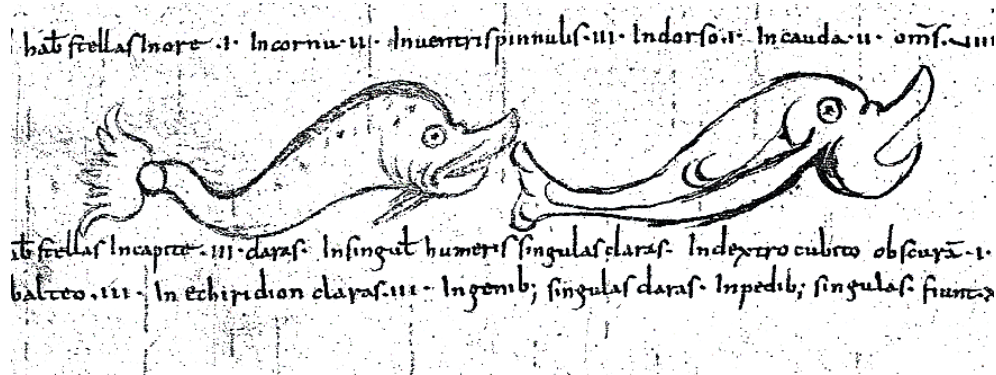 hab̄ stellas In ore ·I· In cornu ·II· In uentris pinnulis ·III· In dorso ·I· In cauda ·II· om̄s
ab̄ stellas In capite ·III· claras· In singul̄ humeris singulas claras· In dextro cubito obscurā ·I·
balteo ·III· In echiridion claras ·III· In genib; singulas claras· In pedib; singulas· fiunt